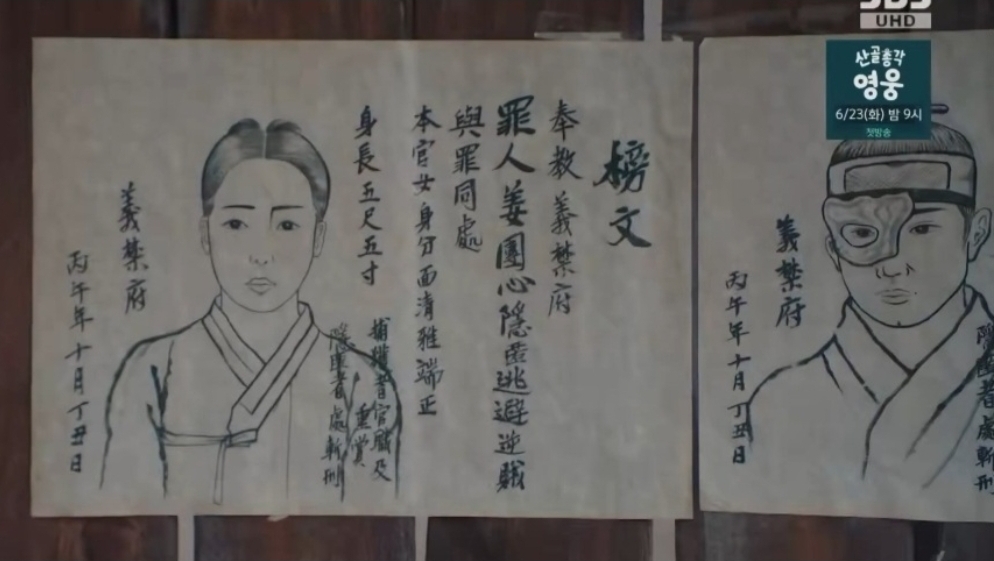 SBS
UHD
산골총각
영웅
6/23(화) 밤 9시
첫방송
榜文
奉教義禁府
罪人姜團心隱匿逃避逆賊
與罪同處
本官女身分面清雅端正
身長五尺五寸
捕獲者官職及
重賞
隱匿者處斬刑
義禁府
丙午年十月丁丑日
隱匿者處斬刑
義禁府
丙午年十月丁丑日